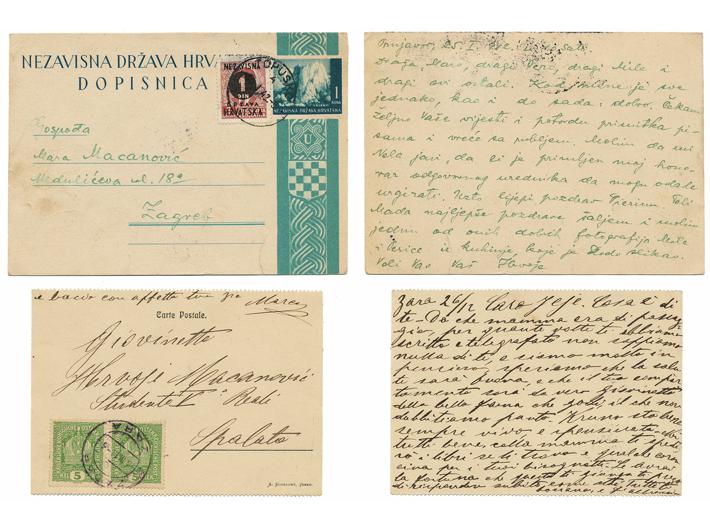 NEZAVISNA DRŽAVA HRV
DOPISNICA
NEZAVISNA
1
DIN
DRŽAVA
HRVATSKA
1
NEZAVISNA DRŽAVA HRVATSKA
U
Gospođa
Mara Macanović
Medulićeva ul. 18
Zagreb
Draga Maro, dragi Vero, dragi Mile i
dragi svi ostali. Kod mene je sve
jednako, kao i do sada: dobro. Čekam
željno Vaše vijesti i potvrdu primitka pi-
sama i vreće sa rubljem. Molim da mi
javi, da li je primljen moj hono-
rar odgovornog urednika da mogu odavle
urgirati. lijepi pozdrav
najljepše pozdrave šaljem i molim
jednu od onih dobrih fotografija Mile
i Verice iz kuhinje, koje je slikao.
Voli Vas Vaš Hrvoje
e bacio con affetto tuo zio Marco
Carte Postale.
Giovinetto
Hrvoje Macanović
Studente
Spalato
5
5
ZARA
Zara 26/12 Caro Cosa è di
te - Da che mamma era di passag-
gio, per quante volte ti abbiamo
scritto e telegrafato non sappiamo
nulla di te, e siamo molto in
pensiero, speriamo che la salu-
te sarà buona, e che il tuo compor-
tamento sarà da vero giovinetto
della bella fama che godi, il che non
dubbitiamo punto. Kruno sta bene
sempre vivo e spensierato,
tutti bene,
i libri se li trova e
per i tuoi bisogni.
la fortuna che questa ti giunga
di rispondere subito,